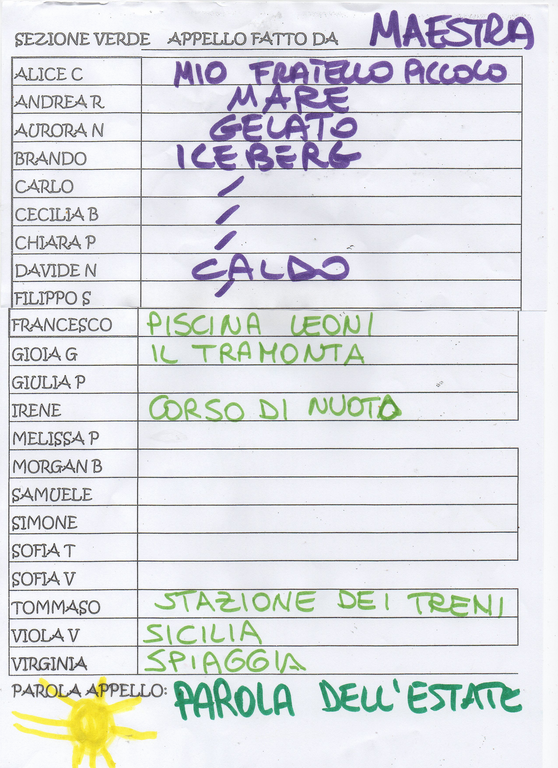 SEZIONE VERDE APPELLO FATTO DA MAESTRA
ALICE C MIO FRATELLO PICCOLO
ANDREA R MARE
AURORA N GELATO
BRANDO ICEBERG
CARLO /
CECILIA B /
CHIARA P /
DAVIDE N CALDO
FILIPPO S /
FRANCESCO PISCINA LEONI
GIOIA G IL TRAMONTA
GIULIA P
IRENE CORSO DI NUOTO
MELISSA P
MORGAN B
SAMUELE
SIMONE
SOFIA T
SOFIA V
TOMMASO STAZIONE DEI TRENI
VIOLA V SICILIA
VIRGINIA SPIAGGIA
PAROLA APPELLO: PAROLA DELL'ESTATE